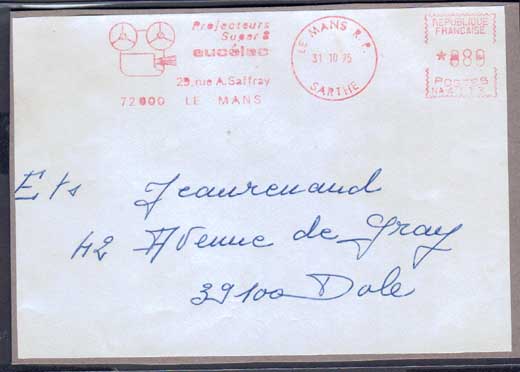 Projecteurs
Super 8
eucélec
29, rue A. Saffray
72000 LE MANS
LE MANS R.P.
31 10 75
SARTHE
REPUBLIQUE
FRANCAISE
*080
POSTES
Ets Jeaurenaud
42 Avenue de Gray
39100 Dole